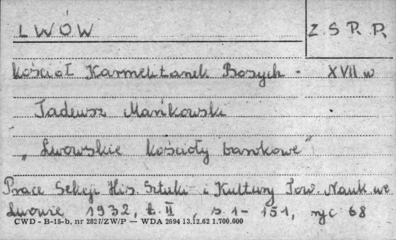 LWÓW
Z. S P. P.
kościół Karmelitanek Bosych - XVII w
Tadeusz Mańkowski
"Lwowskie kościoły barokowe"
Prace Sekcji His. Sztuki i Kultury Tow. Nauk. we
Lwowie 1932, t. II s. 1 - 151, ryc 68
CWD - B-15-b, nr 2827/ZW/P — WDA 2694 13.12.62 1.700.000